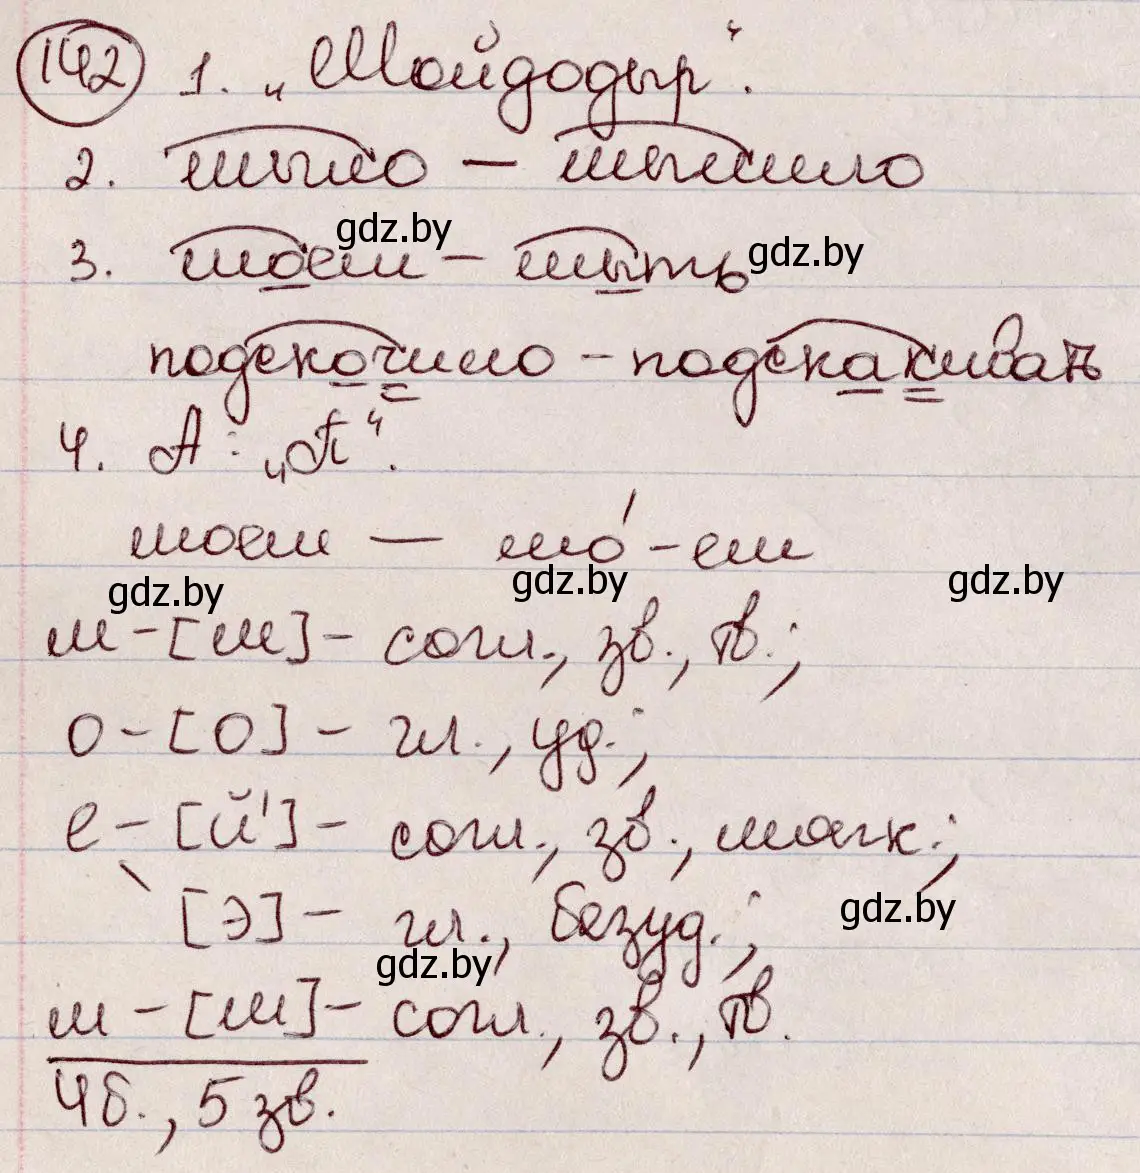 142 1. „Мойдодыр“.
2. мыло – мылило
gdz.by
3. моем – мыть
gdz.by
подскочило – подскакивать
4. А: „П“.
моем — мо́-ем
gdz.by gdz.by gdz.by
м – [м] – согл., зв., тв.;
о – [о] – гл., уд.;
е – [й'] – согл., зв., мягк.;
[э] – гл., безуд.;
gdz.by
gdz.by
м – [м] – согл., зв., тв.
4б., 5 зв.